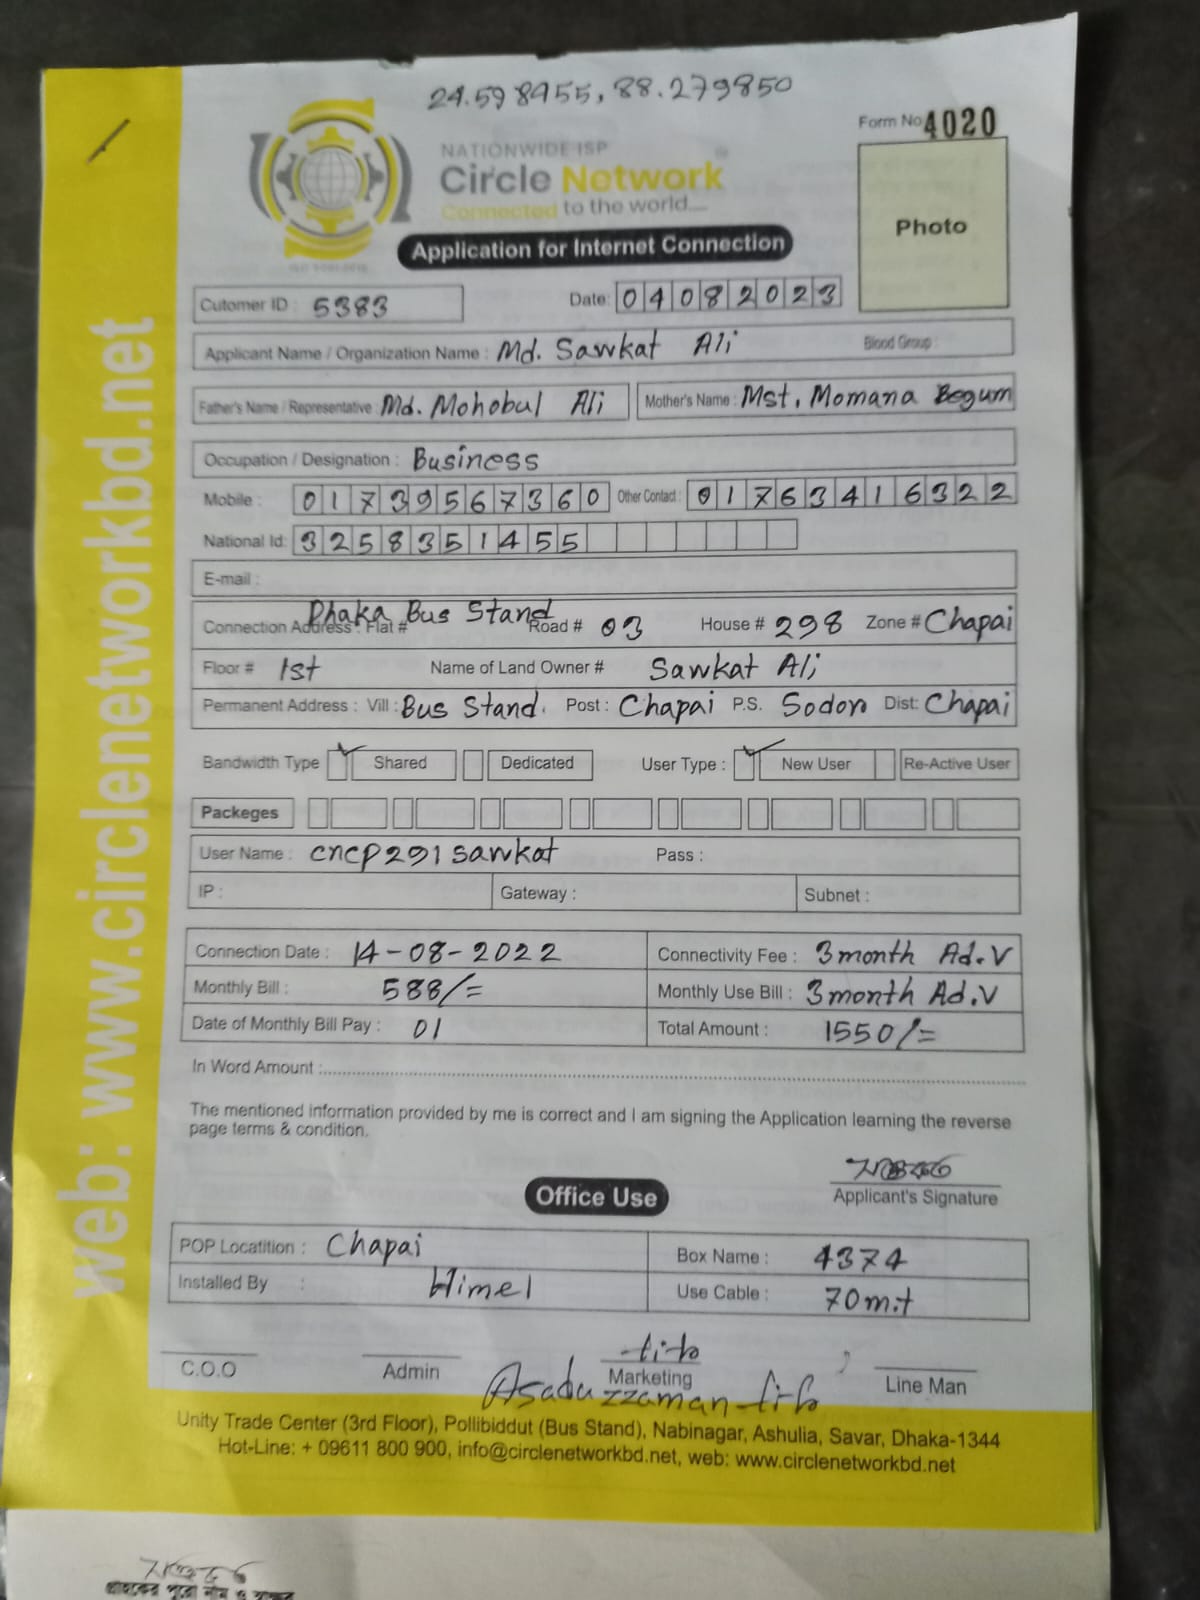 24.598955, 88.279850
Form No 4020
NATIONWIDE ISP
Circle Network
Connected to the world....
Photo
Application for Internet Connection
Cutomer ID : 5383
Date: 04082023
Applicant Name / Organization Name : Md. Sawkat Ali Blood Group :
Father's Name / Representative : Md. Mohobul Ali Mother's Name : Mst. Momana Begum
Occupation / Designation : Business
Mobile : 01739567360 Other Contact : 01763416322
National Id: 3258351455
E-mail :
Connection Address : Flat # Dhaka Bus Stand Road # 03 House # 298 Zone # Chapai
Floor # 1st Name of Land Owner # Sawkat Ali
Permanent Address : Vill : Bus Stand. Post : Chapai P.S. Sodor Dist: Chapai
Bandwidth Type Shared Dedicated User Type : New User Re-Active User
Packeges
User Name : cncp291sawkat Pass :
IP : Gateway : Subnet :
Connection Date : 14-08-2022 Connectivity Fee : 3month Ad.V
Monthly Bill : 588/= Monthly Use Bill : 3month Ad.V
Date of Monthly Bill Pay : 01 Total Amount : 1550/=
In Word Amount :
The mentioned information provided by me is correct and I am signing the Application learning the reverse
page terms & condition.
Applicant's Signature
Office Use
POP Locatition : Chapai Box Name : 4374
Installed By : Himel Use Cable : 70m.t
tito
C.O.O Admin Marketing Line Man
Asaduzzaman tito
Unity Trade Center (3rd Floor), Pollibiddut (Bus Stand), Nabinagar, Ashulia, Savar, Dhaka-1344
Hot-Line: + 09611 800 900, info@circlenetworkbd.net, web: www.circlenetworkbd.net
web: www.circlenetworkbd.net